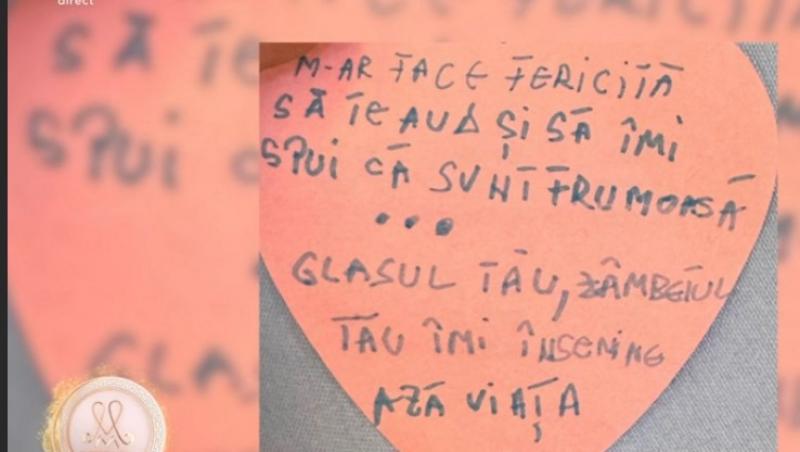 direct
M-AR FACE FERICITĂ
SĂ TE AUD ȘI SĂ ÎMI
SPUI CĂ SUNT FRUMOASĂ
...
GLASUL TĂU, ZÂMBETUL
TĂU ÎMI ÎNSENINE
AZĂ VIAȚA